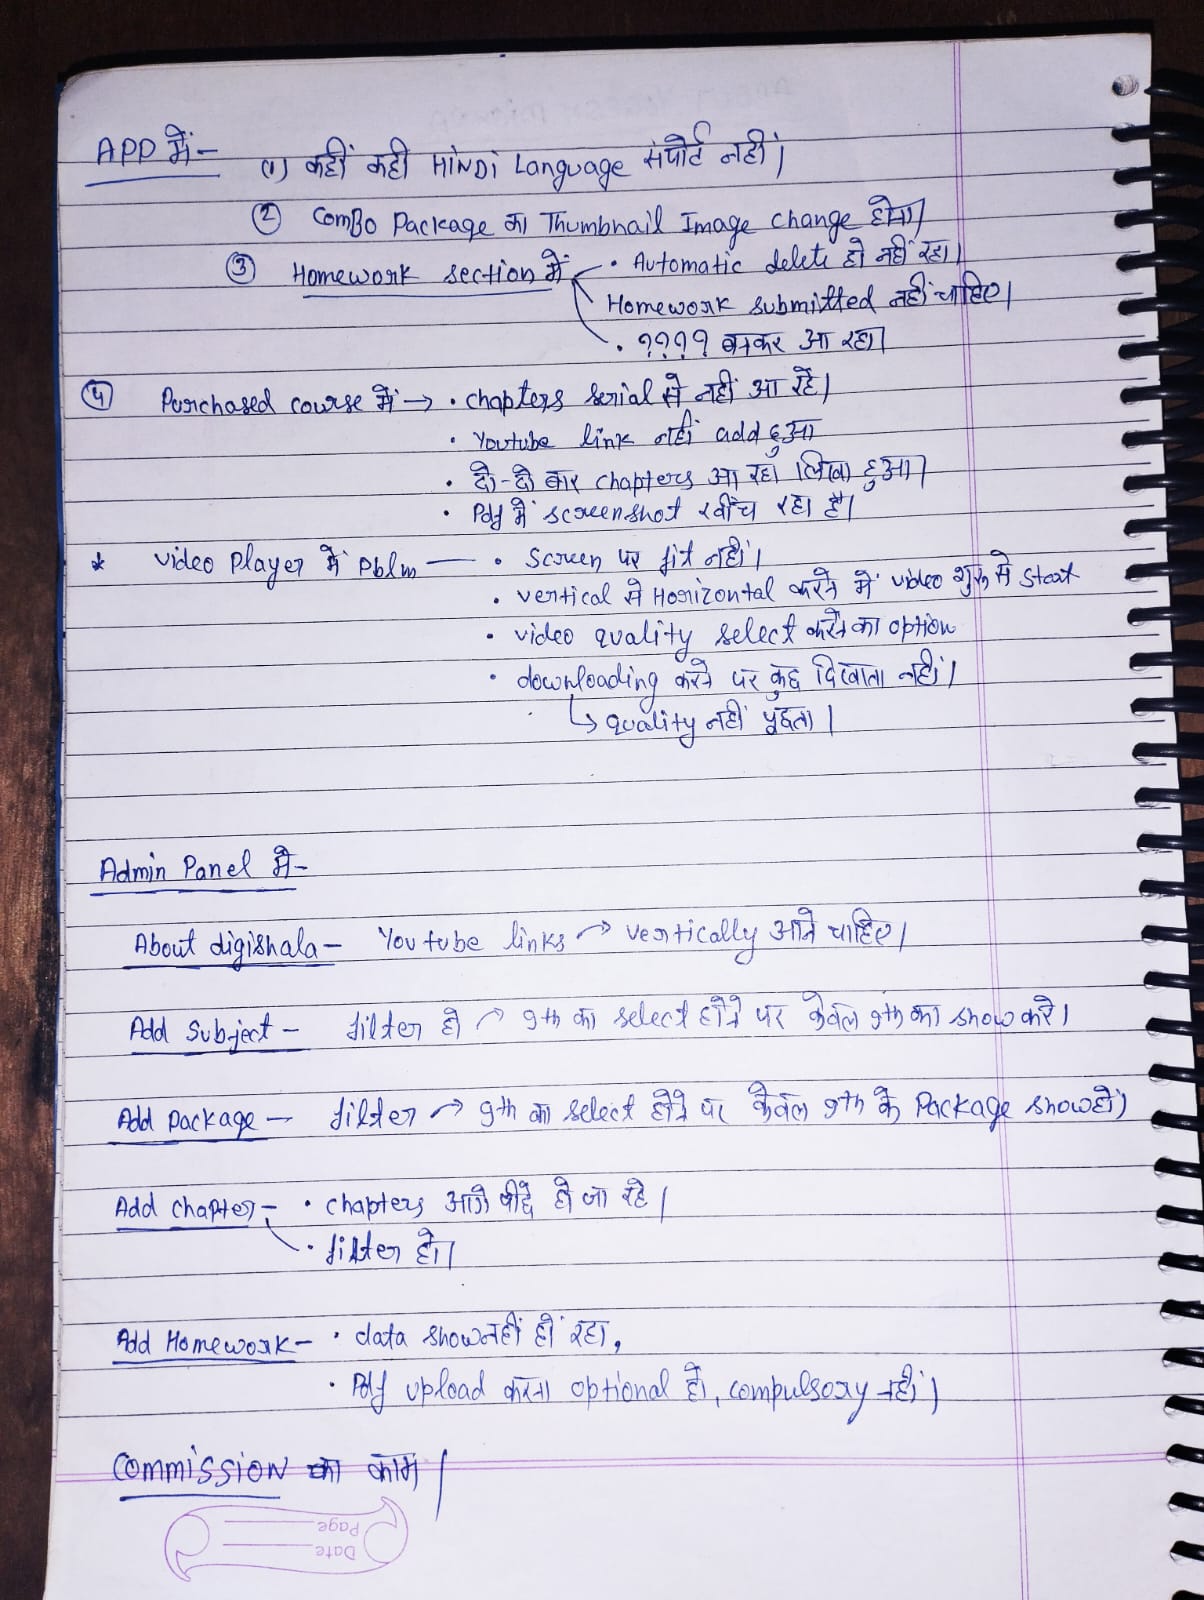 APP में -
(1) कहीं कही HINDI Language सपोर्ट नहीं।
② ComBo Package का Thumbnail Image change होना।
③ Homework section में • Automatic delete हो नहीं रहा।
Homework submitted नहीं चाहिए।
• ???? बनकर आ रहा।
④ Purchased course में → • chapters serial से नहीं आ रहे।
• Youtube link नहीं add हुआ
• दो-दो बार chapters आ रहा लिखा हुआ।
• Pdf में screenshot खींच रहा है।
* Video Player में Pblm — • Screen पर fit नहीं।
• vertical से Horizontal करने में video शुरू से start
• video quality select करने का option
• downloading करने पर कुछ दिखाता नहीं।
↳ quality नहीं पूछता।
Admin Panel में -
About digishala - Youtube links → vertically आने चाहिए।
Add Subject - filter हो → 9th का select होने पर केवल 9th का show करे।
Add package - filter → 9th का select होने पर केवल 9th के Package show हो।
Add chapter - • chapters आगे पीछे हो जा रहे।
• filter हो।
Add Homework - • data show नहीं हो रहा,
• Pdf upload करना optional हो, compulsory नहीं।
Commission का काम।
Page
Date